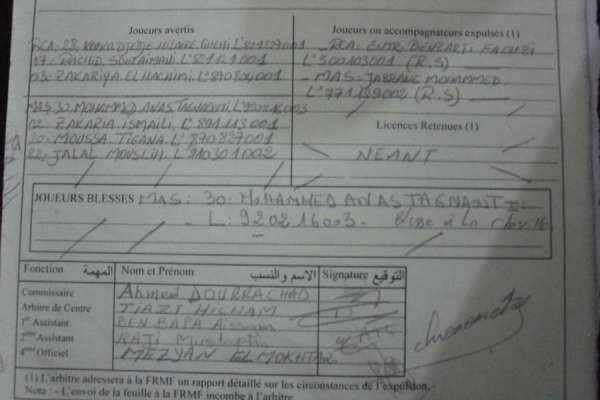 Joueurs avertis
RCA: 28. Hilaire
17. RACHID SOULAIMANI. L
03. ZAKARIYA EL HACHIMI. L
MAS: 30. MOHAMMED ANAS TAGNAOUTI. L
02. ZAKARIA ISMAILI. L° 891113001
MOUSSA TIGANA. L° 870827001
22. JALAL MOUSLIH. L° 810301002
Joueurs ou accompagnateurs expulsés (1)
RCA: ENTR BENZARTI FAOUZI
L° 500103001 (R.S)
MAS: JABRANE MOHAMMED.
L° 771129002 (R.S)
Licences Retenues (1)
NEANT
JOUEURS BLESSES MAS: 30. MOHAMMED ANAS TAGNAOUTI.
L: 920216003. à la
Fonction المهمة Nom et Prénom الاسم والنسب Signature التوقيع
Commissaire Ahmed DOURRACHAD
Arbitre de Centre TIAZI HICHAM
1er Assistant BEN BABA
2ème Assistant RATI Mustapha
4ème Officiel MEZYAN EL MOKHTAR
(1) L'arbitre adressera à la FRMF un rapport détaillé sur les circonstances de l'expulsion.
Nota : - L'envoi de la feuille à la FRMF incombe à l'arbitre